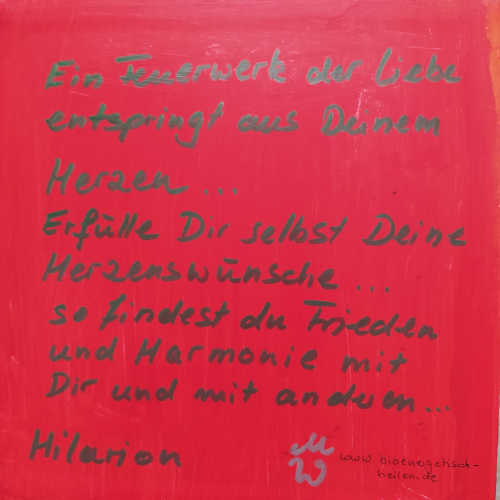 Ein Feuerwerk der Liebe
entspringt aus Deinem
Herzen ...
Erfülle Dir selbst Deine
Herzenswünsche ...
so findest du Frieden
und Harmonie mit
Dir und mit anderen ...
Hilarion
MW
www.bioenergetisch-
heilen.de